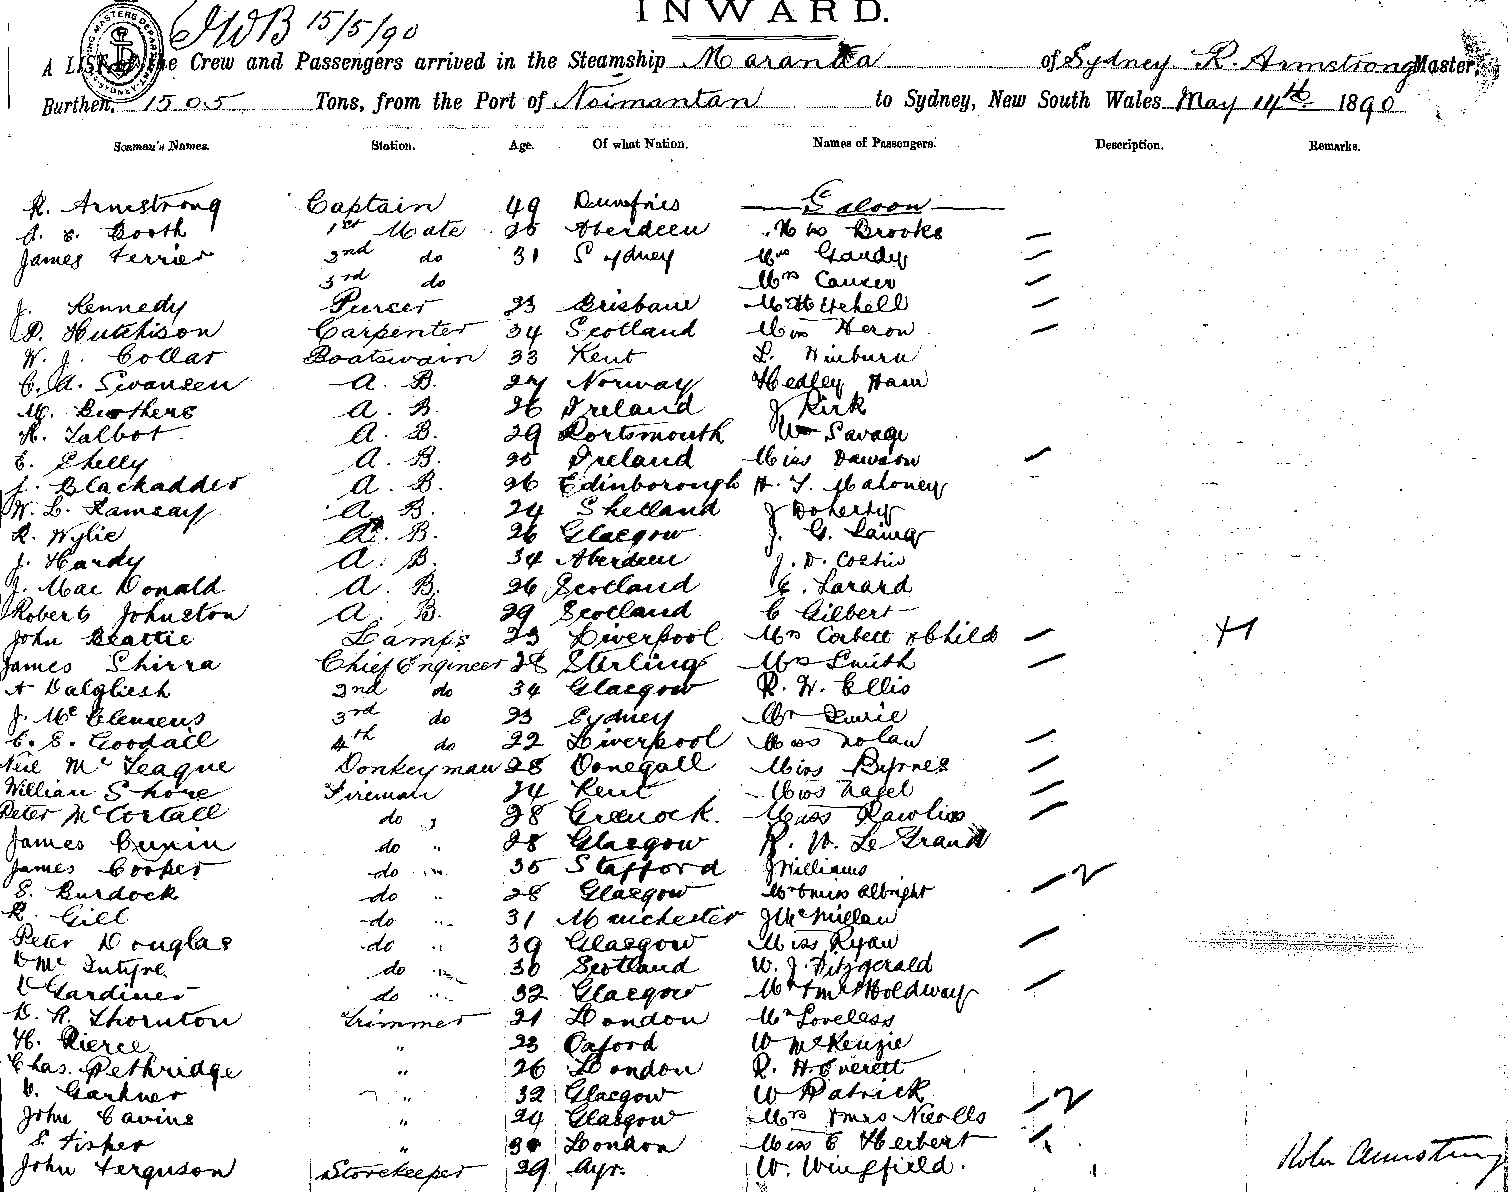 INWARD.
JWB 15/5/90
A LIST of the Crew and Passengers arrived in the Steamship Maranoa of Sydney R. Armstrong Master,
Burthen, 1505 Tons, from the Port of to Sydney, New South Wales May 14th 1890
Seaman's Names. Station. Age. Of what Nation. Names of Passengers. Description. Remarks.
R. Armstrong Captain 49 Dumfries Saloon
A. E. Booth 1st Mate Aberdeen Brooks
James Ferrier 2nd do 31 Sydney Mrs Gandy
3rd do Mrs Causer
J. Kennedy Purser 23 Brisbane Mitchell
D. Hutchison Carpenter 34 Scotland Miss Heron
W. J. Collar Boatswain 33 Kent L. Winburn
C. A. Swansen A. B. 27 Norway Hedley Ham
M. Brothers A. B. 26 Ireland J Kirk
A. Talbot A. B. 29 Portsmouth Wm Savage
E. Shelly A. B. 25 Ireland Miss Dawson
J. Blackadder A. B. 26 Edinborough H. T. Mahoney
W. L. Ramsay A. B. 24 Shetland J Doherty
R. Wylie A. B. 26 Glasgow J. G. Laing
J. Hardy A. B. 34 Aberdeen J. D. Costin
J. Mac Donald A. B. 26 Scotland E. Larard
Robert Johnston A. B. 29 Scotland C Gilbert
John Beattie Lamps 23 Liverpool Mrs Corbett & Child
James Shirra Chief Engineer 28 Sterling Mrs Smith
A Dalgliesh 2nd do 34 Glasgow R. W. Ellis
J. Mc Clemens 3rd do 23 Sydney Mr
C. E. Goodall 4th do 22 Liverpool Miss Nolan
Neil Mc Teague Donkeyman 28 Donegall Miss Byrnes
William Shore Fireman 24 Kent Miss Nagel
Peter McCortall do 28 Greenock. Miss Rawlins
James Cunin do " 28 Glasgow R. W. Le Grand
James Cooper do " 35 Stafford J Williams
S. Burdock do " 28 Glasgow Mr & Miss Albright
R. Gill do " 31 Manchester J McMillan
Peter Douglas do " 39 Glasgow Miss Ryan
D Mc Intyre do " 30 Scotland W. J. Fitzgerald
D Gardiner do " 32 Glasgow Mr & Mrs Holdway
D. R. Thornton Trimmer 21 London Mr Loveless
H. Pierce " 23 Oxford W McKenzie
Chas. Pethridge " 26 London R. H Everett
D. Gardner " 32 Glasgow W Patrick
John Cavins " 24 Glasgow Mrs & Miss Nicolls
S. Fisher " 30 London Miss E Herbert
John Ferguson Storekeeper 29 Ayr. W. Wingfield.
Robt Armstrong